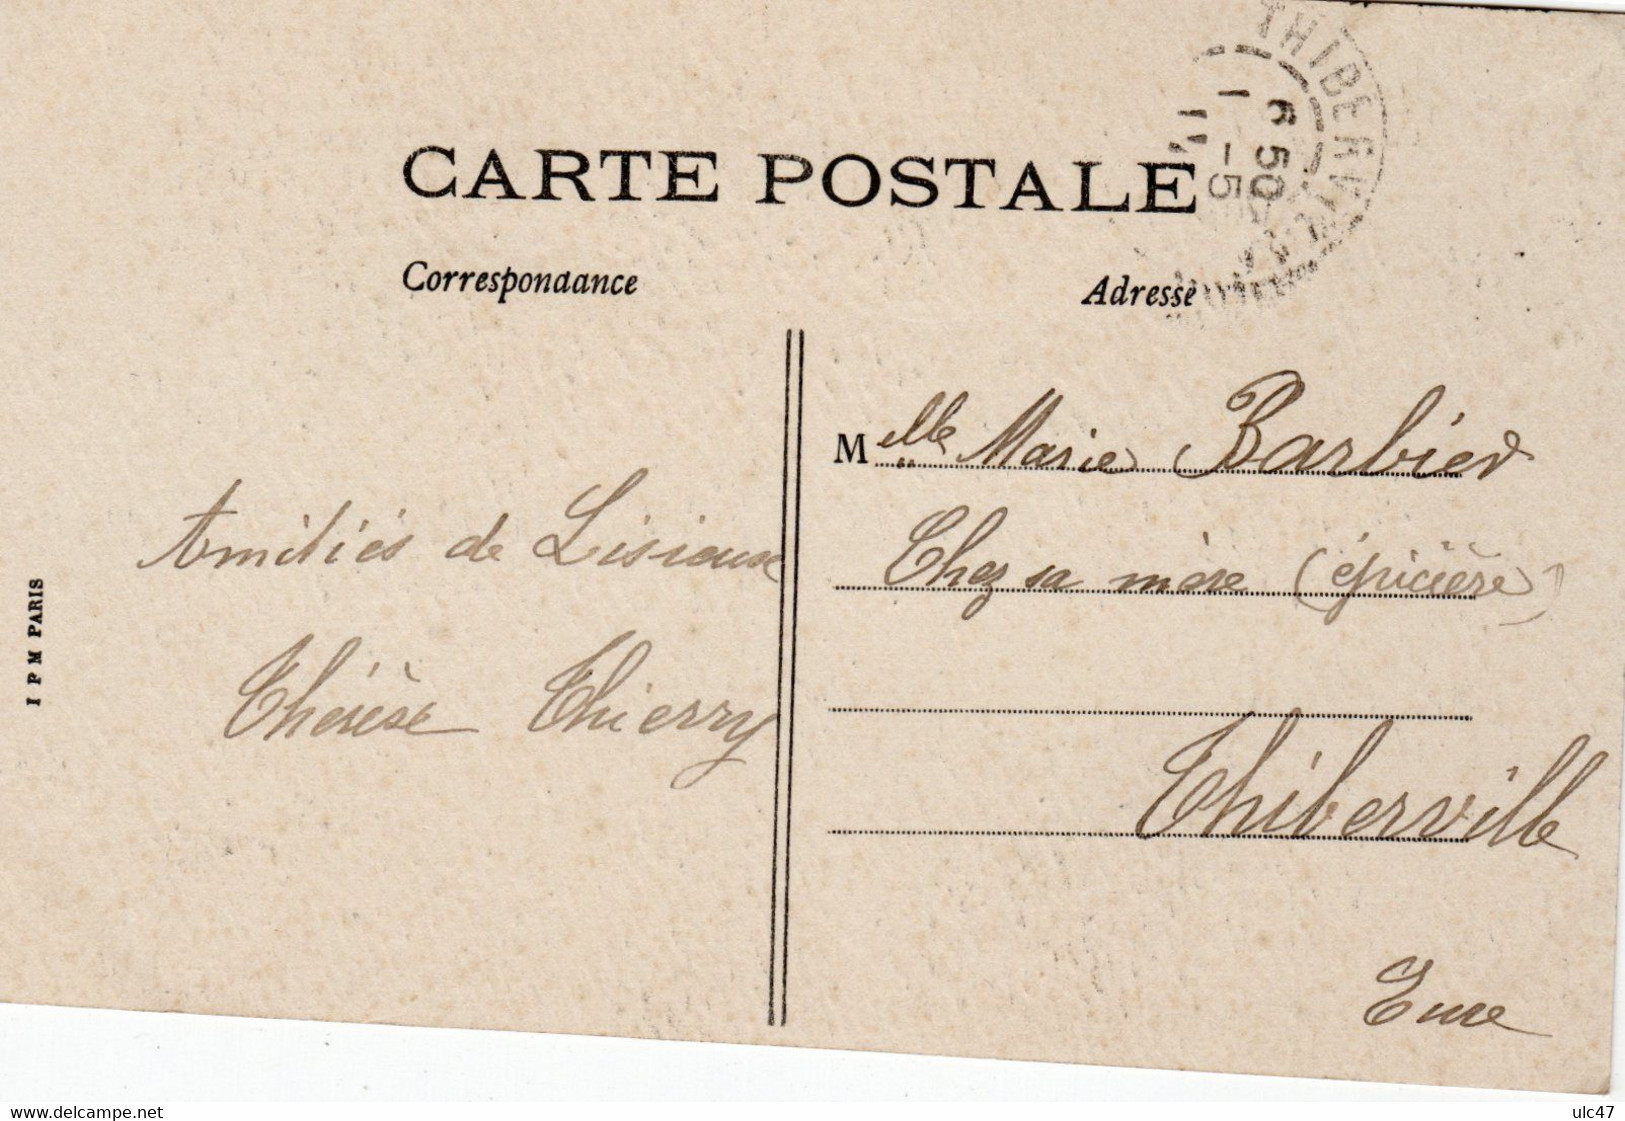 THIBERVILLE
6 50
1 -5
11
CARTE POSTALE
Correspondance
Adresse
Melle Marie Barbier
Chez sa mère (épicière)
Thiberville
Eure
Amitiés de Lisieux
Thérèse Thierry
I P M PARIS
www.delcampe.net
ulc47